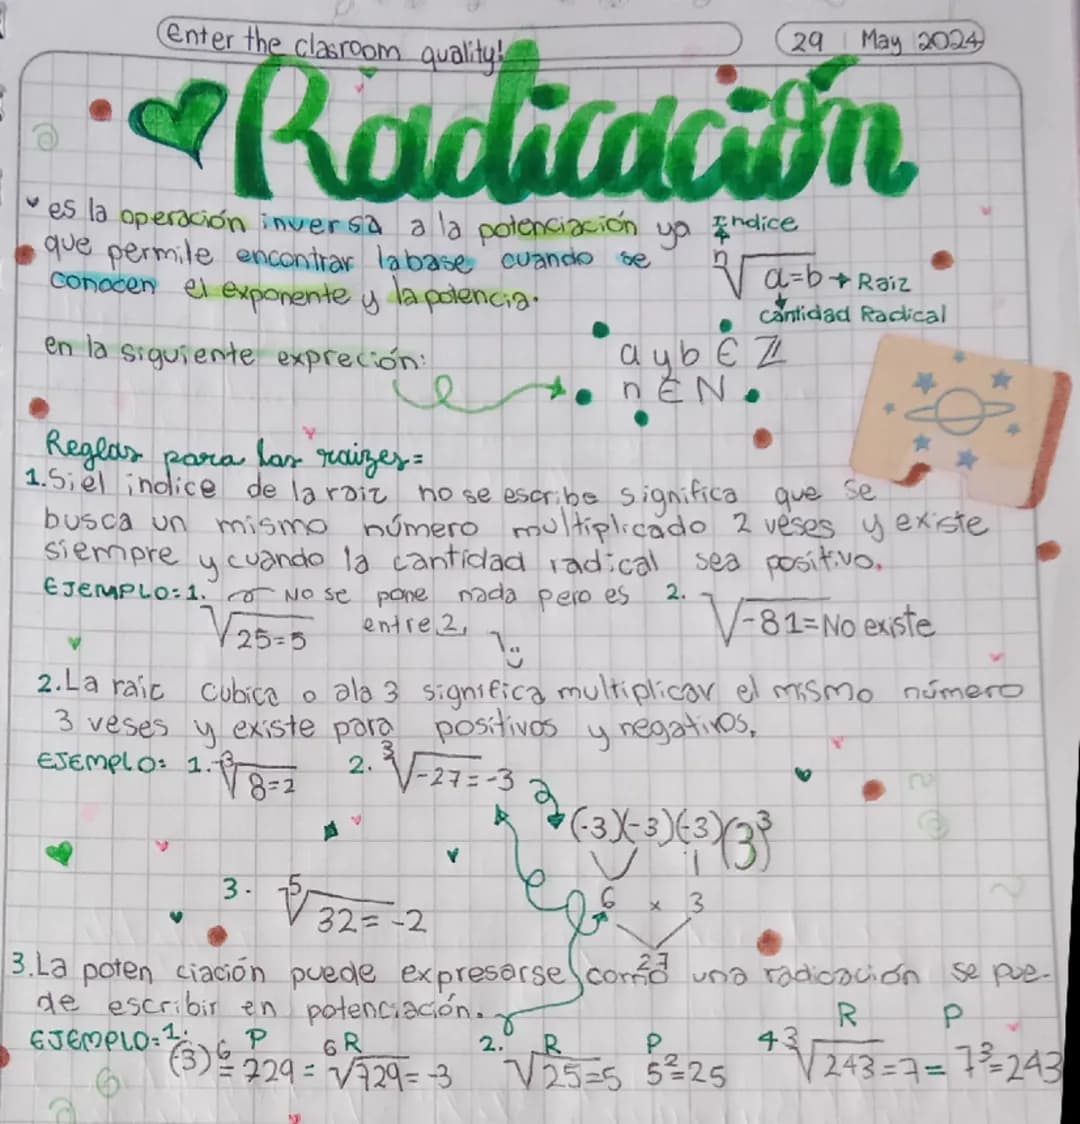 Enter the clasroom quality!
29 May 2024
Radicación
es la operación inversa a la potenciación ya
que permite encontrar la base cuando se
conocen el exponente y la potencia.
Índice
n√a=b → Raiz
cantidad Radical
en la siguiente expreción:
a y b ∈ Z
n ∈ N
Reglas para las raizes=
1. Si el indice de la raiz no se escribe significa que se
busca un mismo número multiplicado 2 veses y existe
siempre y cuando la cantidad radical sea positivo.
EJEMPLO: 1. No se pone nada pero es 2.
√25=5 entre 2, √-81=No existe
2. La raíc cubica o ala 3 significa multiplicar el mismo número
3 veses y existe para positivos y negativos.
EJEMPLO: 1. 3√8=2 2. 3√-27=-3
(-3)(-3)(-3)(3)³
6 x 3
27
3. 5√32=-2
3. La poten ciación puede expresarse como una radicación se pue-
de escribir en potenciación.
EJEMPLO=1. P 6 R 2. R P 4 R P
(3)⁶=729=√729=-3 √25=5 5²=25 3√243=7=7³=243